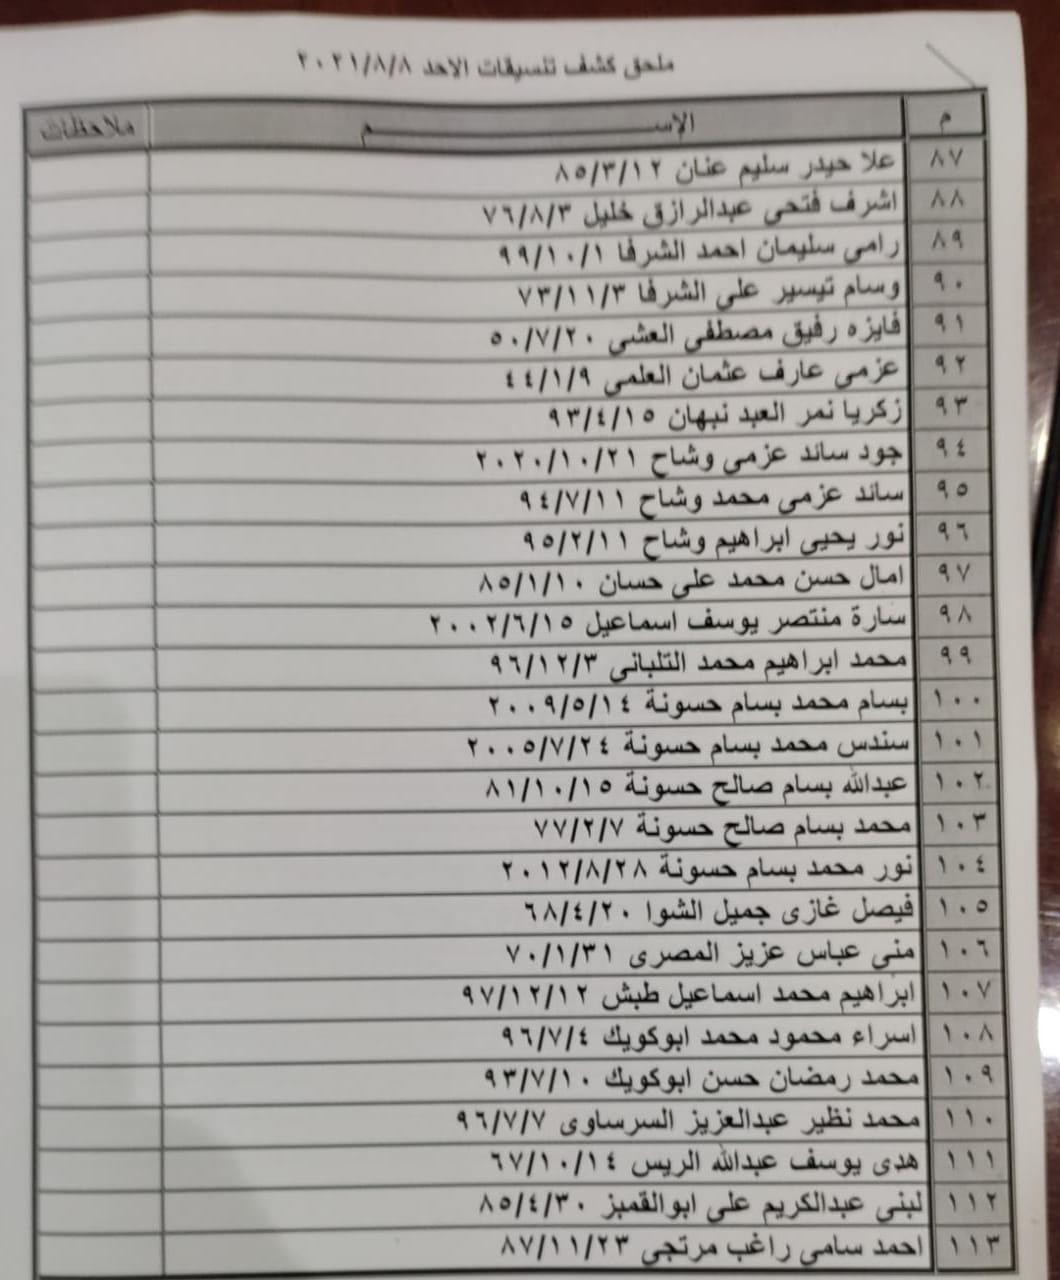 ملحق كشف تنسيقات الاحد ٢٠٢١/٨/٨
م الإســـــــــــــم ملاحظات
٨٧ علا حيدر سليم عنان ٨٥/٣/١٢
٨٨ اشرف فتحي عبدالرازق خليل ٧٦/٨/٣
٨٩ رامي سليمان احمد الشرفا ٩٩/١٠/١
٩٠ وسام تيسير علي الشرفا ٧٣/١١/٣
٩١ فايزه رفيق مصطفى العشي ٥٠/٧/٢٠
٩٢ عزمي عارف عثمان العلمي ٤٤/١/٩
٩٣ زكريا نمر العبد نبهان ٩٣/٤/١٥
٩٤ جود سائد عزمي وشاح ٢٠٢٠/١٠/٢١
٩٥ سائد عزمي محمد وشاح ٩٤/٧/١١
٩٦ نور يحيى ابراهيم وشاح ٩٥/٢/١١
٩٧ امال حسن محمد علي حسان ٨٥/١/١٠
٩٨ سارة منتصر يوسف اسماعيل ٢٠٠٢/٦/١٥
٩٩ محمد ابراهيم محمد التلباني ٩٦/١٢/٣
١٠٠ بسام محمد بسام حسونة ٢٠٠٩/٥/١٤
١٠١ سندس محمد بسام حسونة ٢٠٠٥/٧/٢٤
١٠٢ عبدالله بسام صالح حسونة ٨١/١٠/١٥
١٠٣ محمد بسام صالح حسونة ٧٧/٢/٧
١٠٤ نور محمد بسام حسونة ٢٠١٢/٨/٢٨
١٠٥ فيصل غازي جميل الشوا ٦٨/٤/٢٠
١٠٦ منى عباس عزيز المصري ٧٠/١/٣١
١٠٧ ابراهيم محمد اسماعيل طبش ٩٧/١٢/١٢
١٠٨ اسراء محمود محمد ابوكويك ٩٦/٧/٤
١٠٩ محمد رمضان حسن ابوكويك ٩٣/٧/١٠
١١٠ محمد نظير عبدالعزيز السرساوي ٩٦/٧/٧
١١١ هدى يوسف عبدالله الريس ٦٧/١٠/١٤
١١٢ لبنى عبدالكريم علي ابوالقمبز ٨٥/٤/٣٠
١١٣ احمد سامي راغب مرتجي ٨٧/١١/٢٣